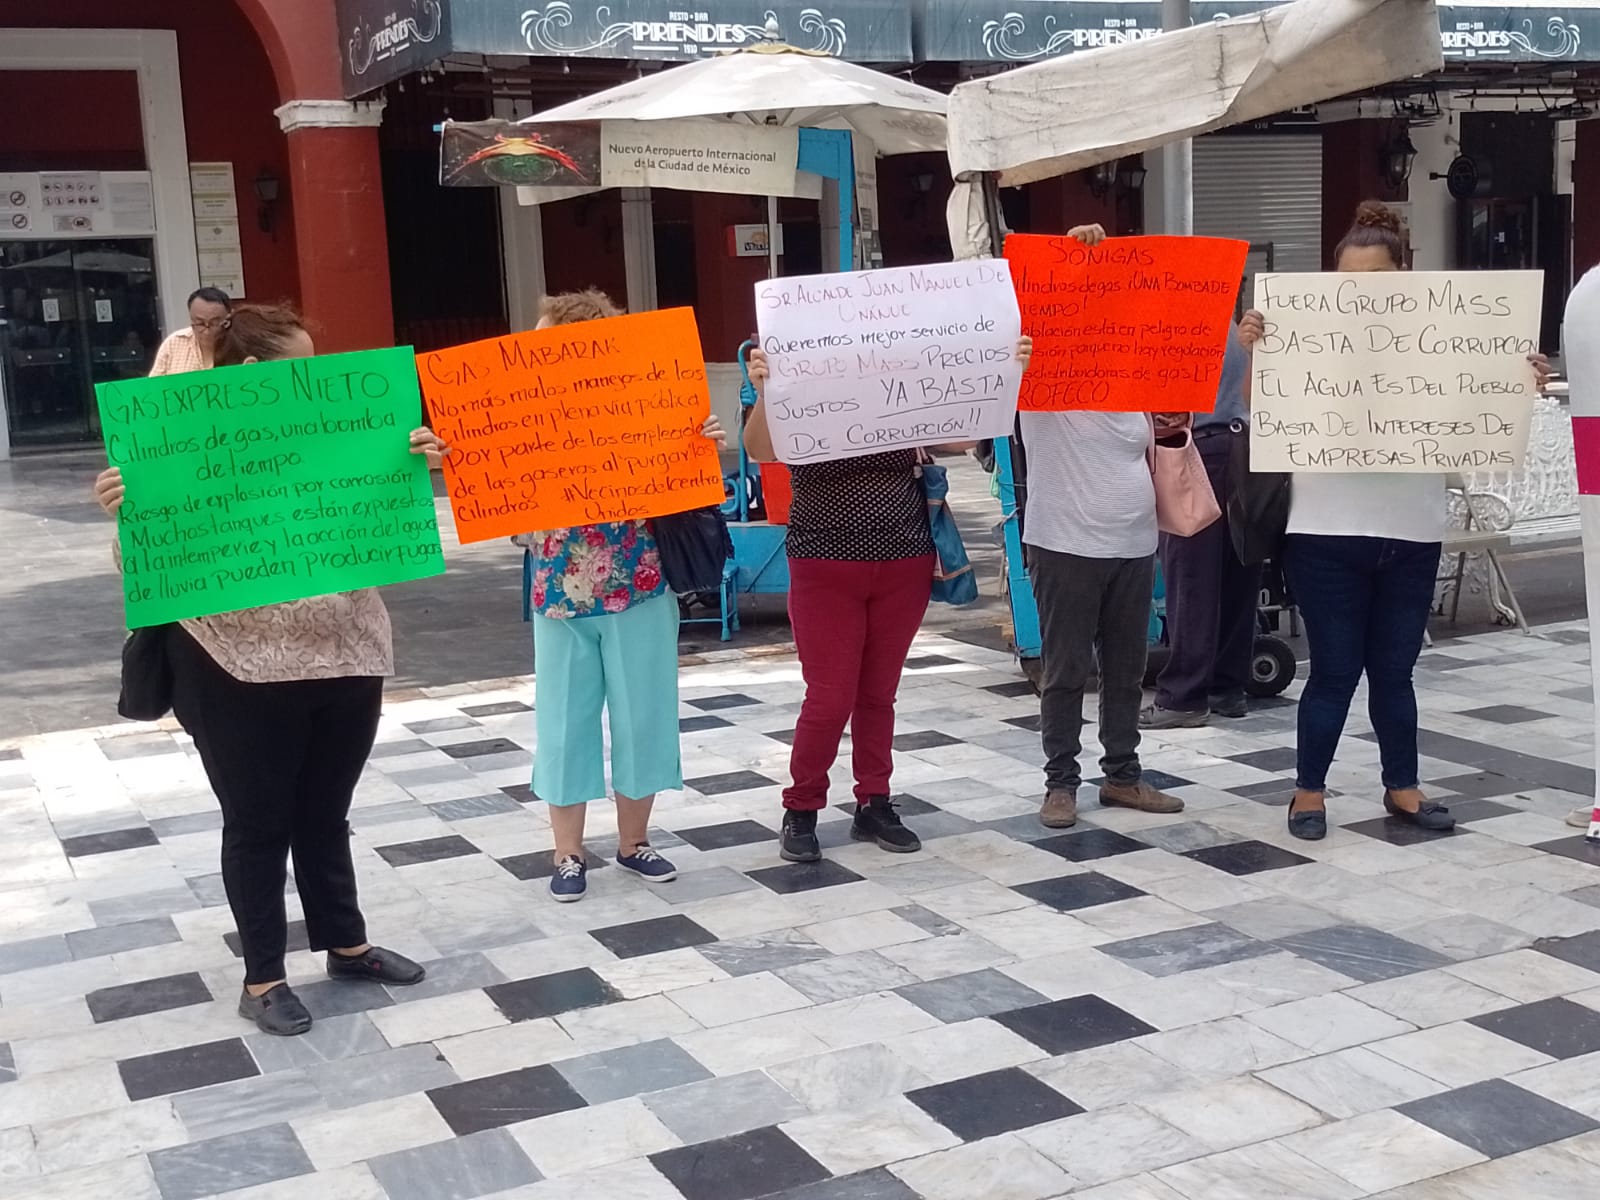 RESTO • BAR
PRENDES
1910
RESTO • BAR
PRENDES
RESTO • BAR
PRENDES
PRENDES
Nuevo Aeropuerto Internacional
de la Ciudad de México
GAS EXPRESS NIETO
Cilindros de gas, una bomba
de tiempo.
Riesgo de explosión por corrosión.
Muchos tanques están expuestos
a la intemperie y la acción del agua
de lluvia pueden producir fugas
GAS MABARAK
No más malos manejos de los
Cilindros en plena vía pública
por parte de los empleado
de las gaseras al "purgar" los
Cilindros #Vecinosdelcentro
Unidos
SR. ALCALDE JUAN MANUEL DE
UNÁNUE
Queremos mejor servicio de
GRUPO MASS PRECIOS
JUSTOS YA BASTA
DE CORRUPCIÓN!!
SONIGAS
ilindros de gas ¡UNA BOMBA DE
TIEMPO!
oblación está en peligro de
sión porque no hay regulación
distribuidoras de gas LP
ROFECO
FUERA GRUPO MASS
BASTA DE CORRUPCION
EL AGUA ES DEL PUEBLO.
BASTA DE INTERESES DE
EMPRESAS PRIVADAS